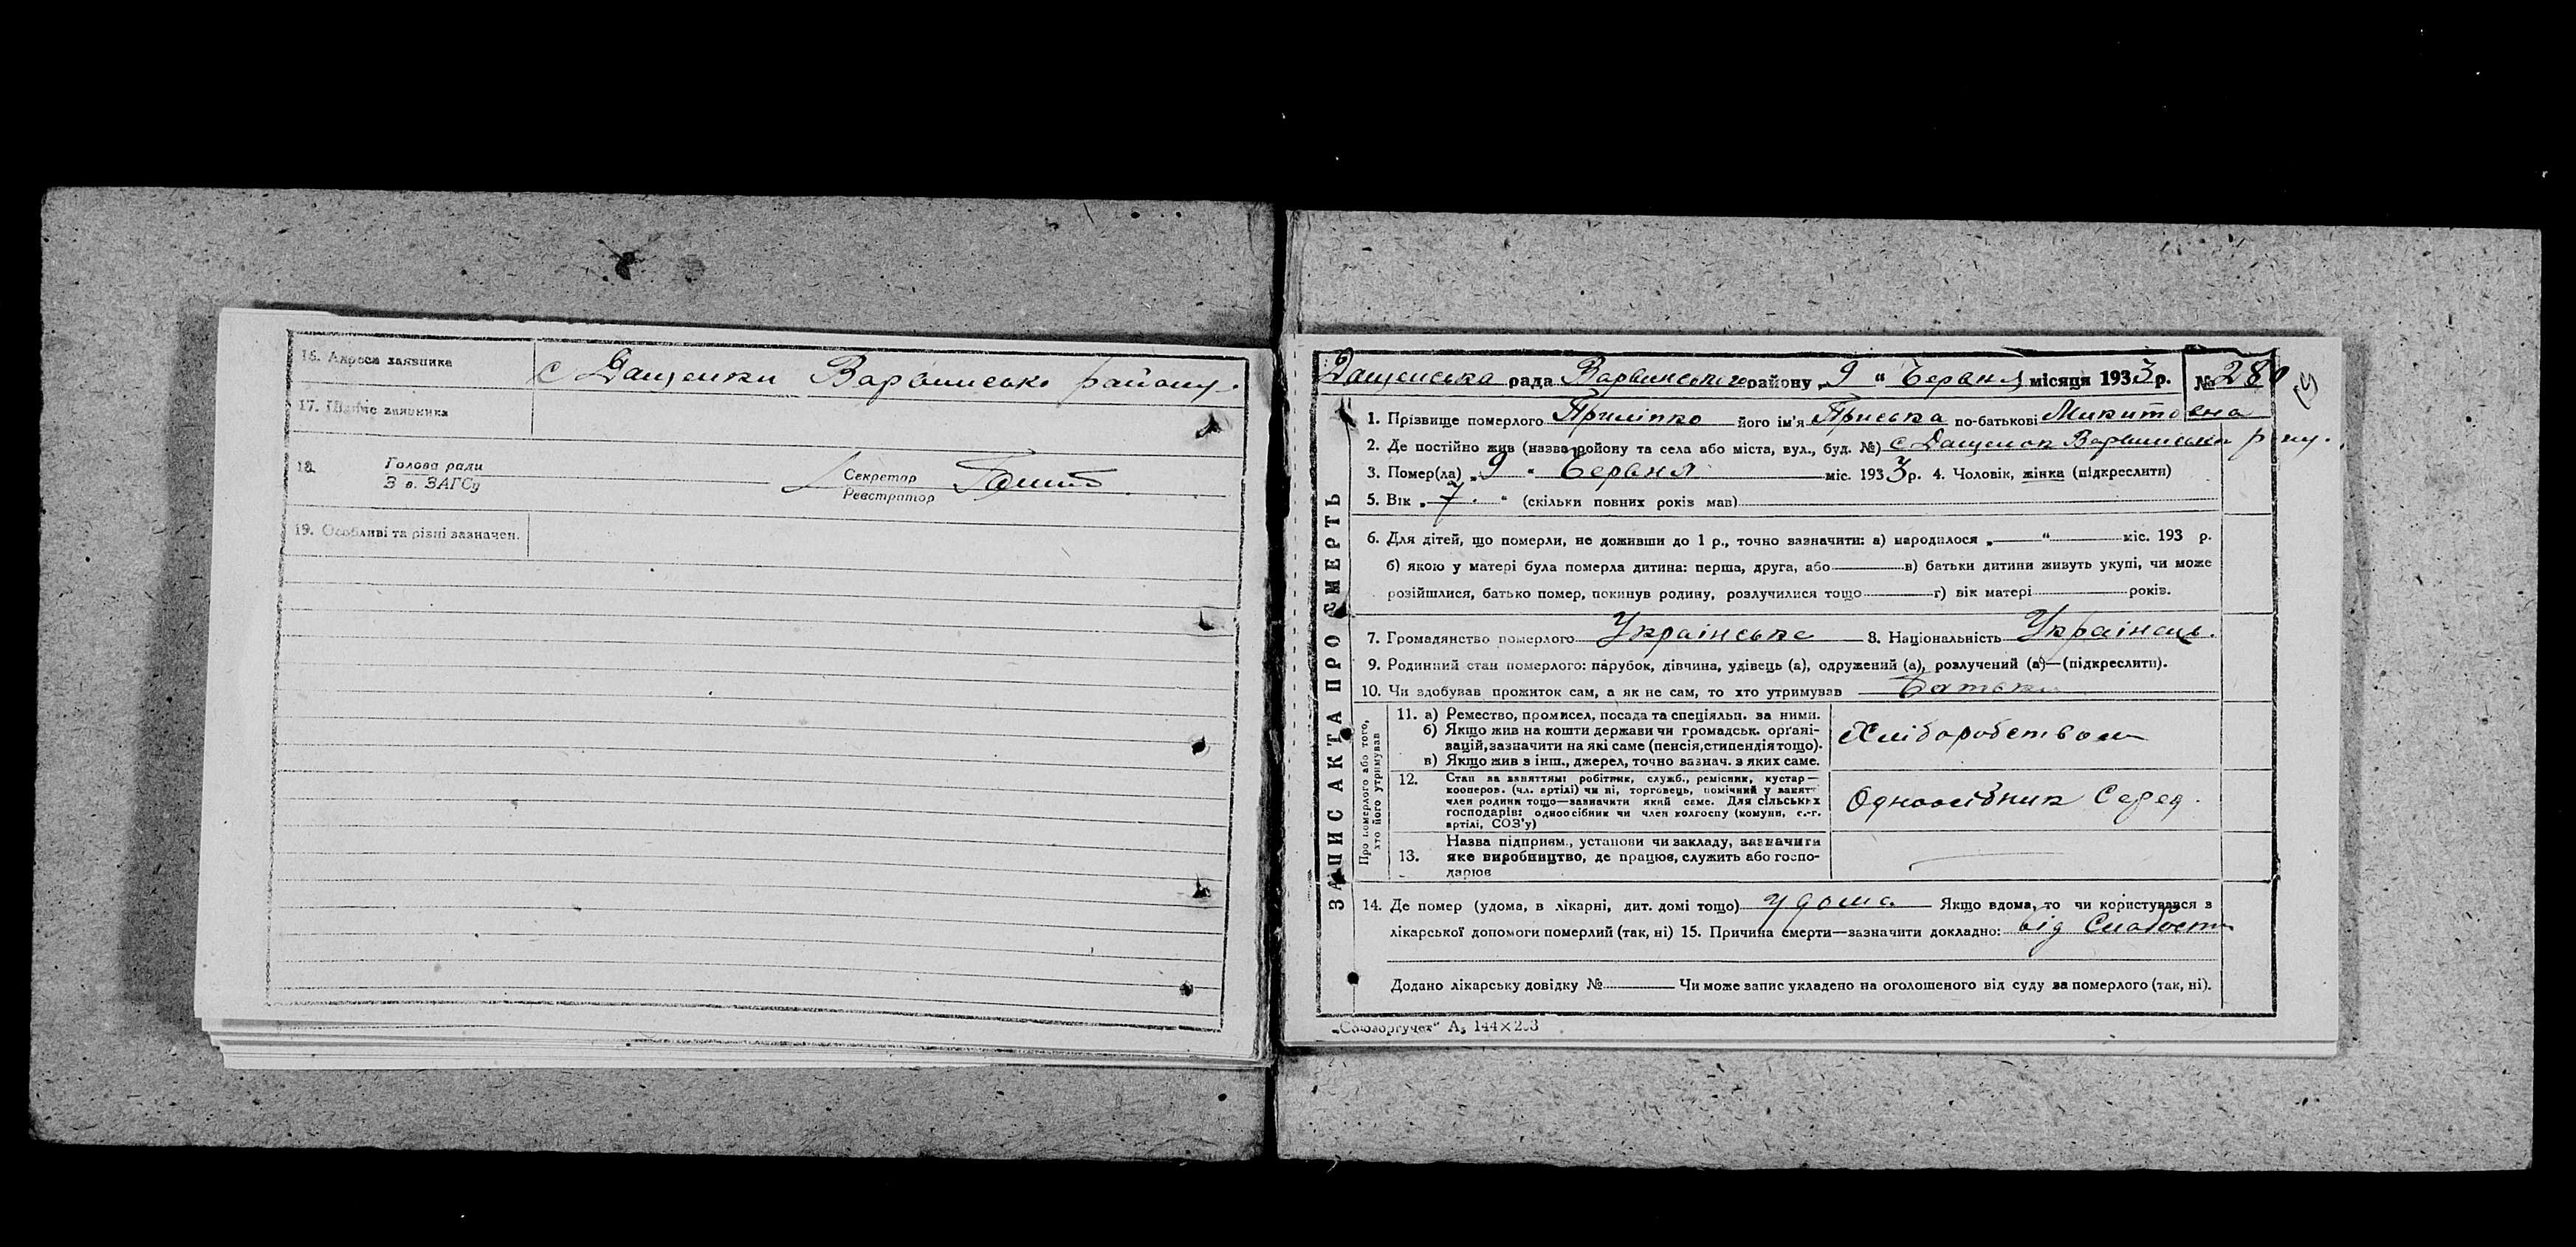 16. Адреса заявника с Дащенки Варвинсько району.
17. Підпис заявника
18. Голова ради
З в. ЗАГСу
Секретар
Реєстратор
19. Особливі та різні зазначен.
Дащенська рада Варвинського району „9“ Червня місяця 1933 р. № 280
ЗАПИС АКТА ПРО СМЕРТЬ
1. Прізвище померлого Приліпко його ім'я Приська по-батькові Микитовна
2. Де постійно жив (назва району та села або міста, вул., буд. №) с Дащенок Варвинська р ну.
3. Помер(ла) „9“ Червня міс. 1933 р. 4. Чоловік, жінка (підкреслити)
5. Вік „7“ (скільки повних років мав)
6. Для дітей, що померли, не доживши до 1 р., точно зазначити: а) народилося „ “ міс. 193 р.
б) якою у матері була померла дитина: перша, друга, або в) батьки дитини живуть укупі, чи може
розійшлися, батько помер, покинув родину, розлучилися тощо г) вік матері років.
7. Громадянство померлого Українське 8. Національність Українець.
9. Родинний стан померлого: парубок, дівчина, удівець (а), одружений (а), розлучений (а)—(підкреслити).
10. Чи здобував прожиток сам, а як не сам, то хто утримував Батьки
Про померлого або того, хто його утримував
11. а) Ремество, промисел, посада та спеціяльн. за ними.
б) Якщо жив на кошти держави чи громадськ. орґані-
зацій, зазначити на які саме (пенсія, стипендія тощо).
в) Якщо жив з інш., джерел, точно зазнач. з яких саме.
Хліборобством
12. Стан за заняттям: робітник, служб., ремісник, кустар—
кооперов. (чл. артілі) чи ні, торговець, помічний у занятт
член родини тощо—зазначити який саме. Для сільських
господарів: одноосібник чи член колгоспу (комуни, с.-г.
артілі, СОЗ'у)
Одноосібник Серед.
13. Назва підприєм., установи чи закладу, зазначити
яке виробництво, де працює, служить або госпо-
дарює
14. Де помер (удома, в лікарні, дит. домі тощо) удома Якщо вдома, то чи користувався з
лікарської допомоги померлий (так, ні) 15. Причина смерти—зазначити докладно: від Слабости
Додано лікарську довідку № Чи може запис укладено на оголошеного від суду за померлого (так, ні).
„Союзоргучет“ А₅ 144×203